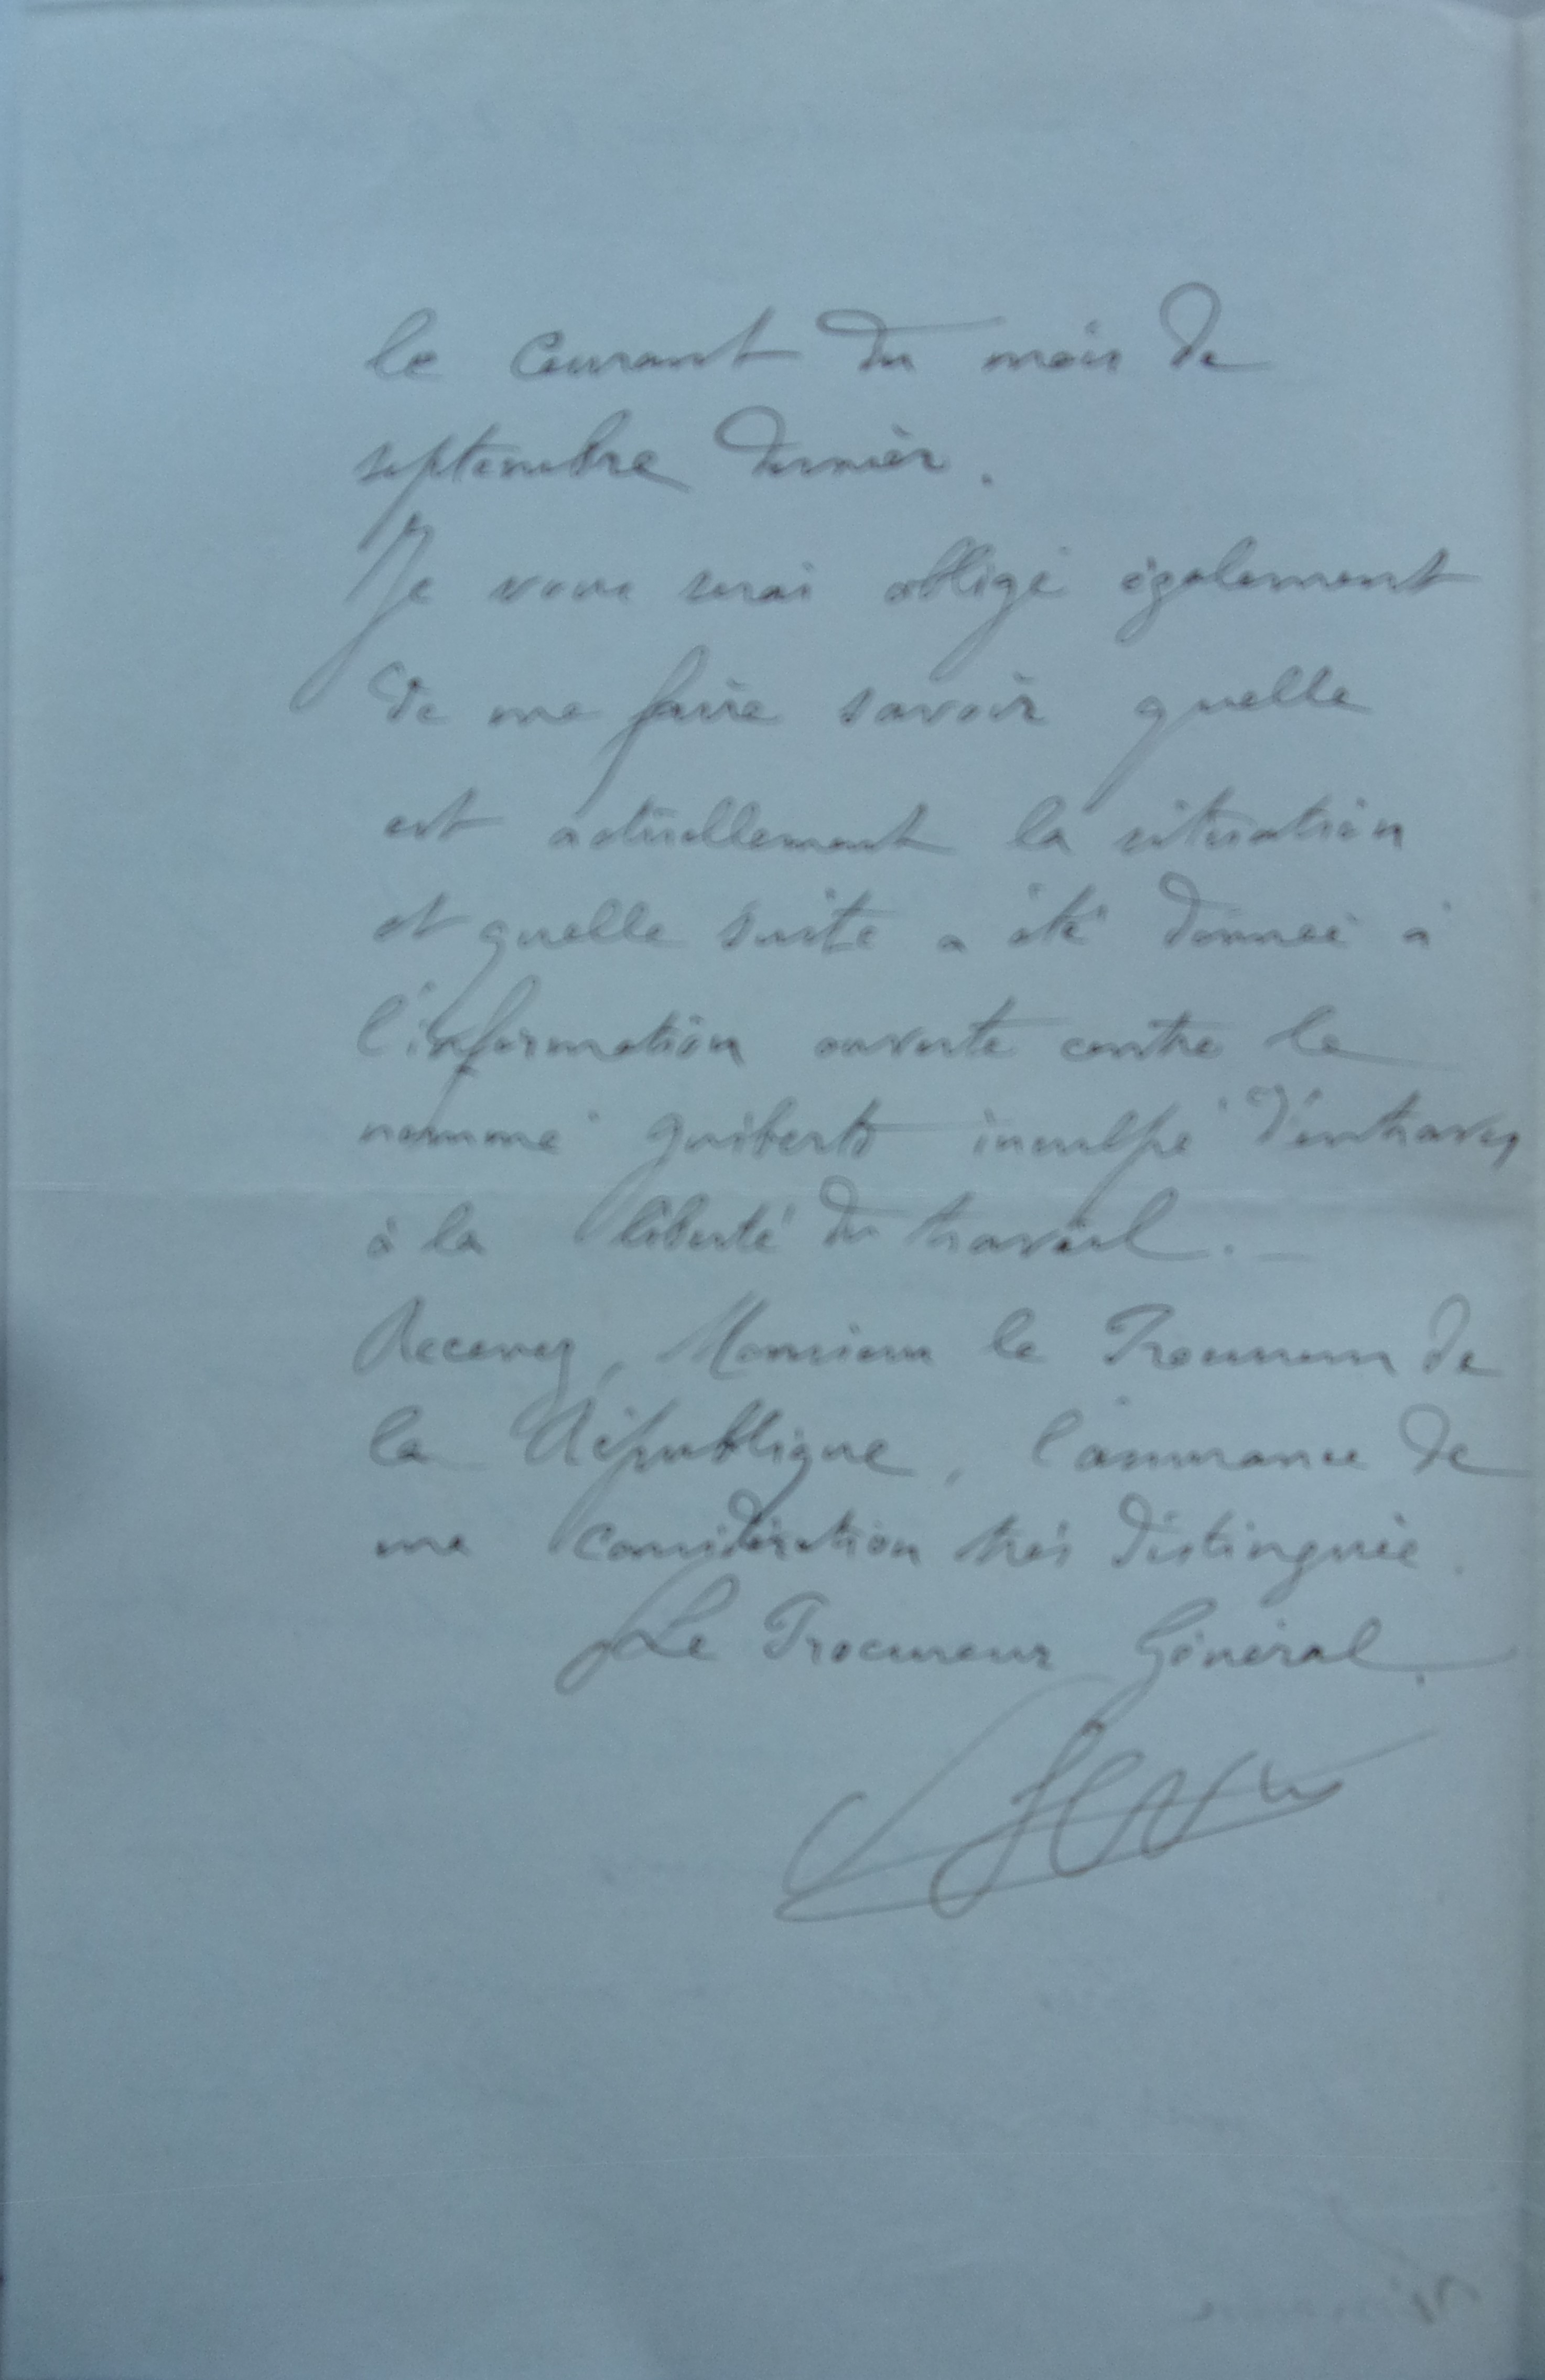 le courant du mois de
septembre dernier.
Je vous serai obligé également
de me faire savoir quelle
est actuellement la situation
et quelle suite a été donnée à
l'information ouverte contre le
nommé Guibert inculpé d'entraves
à la liberté du travail. _
Recevez, Monsieur le Procureur de
la République, l'assurance de
ma considération très distinguée.
Le Procureur Général.